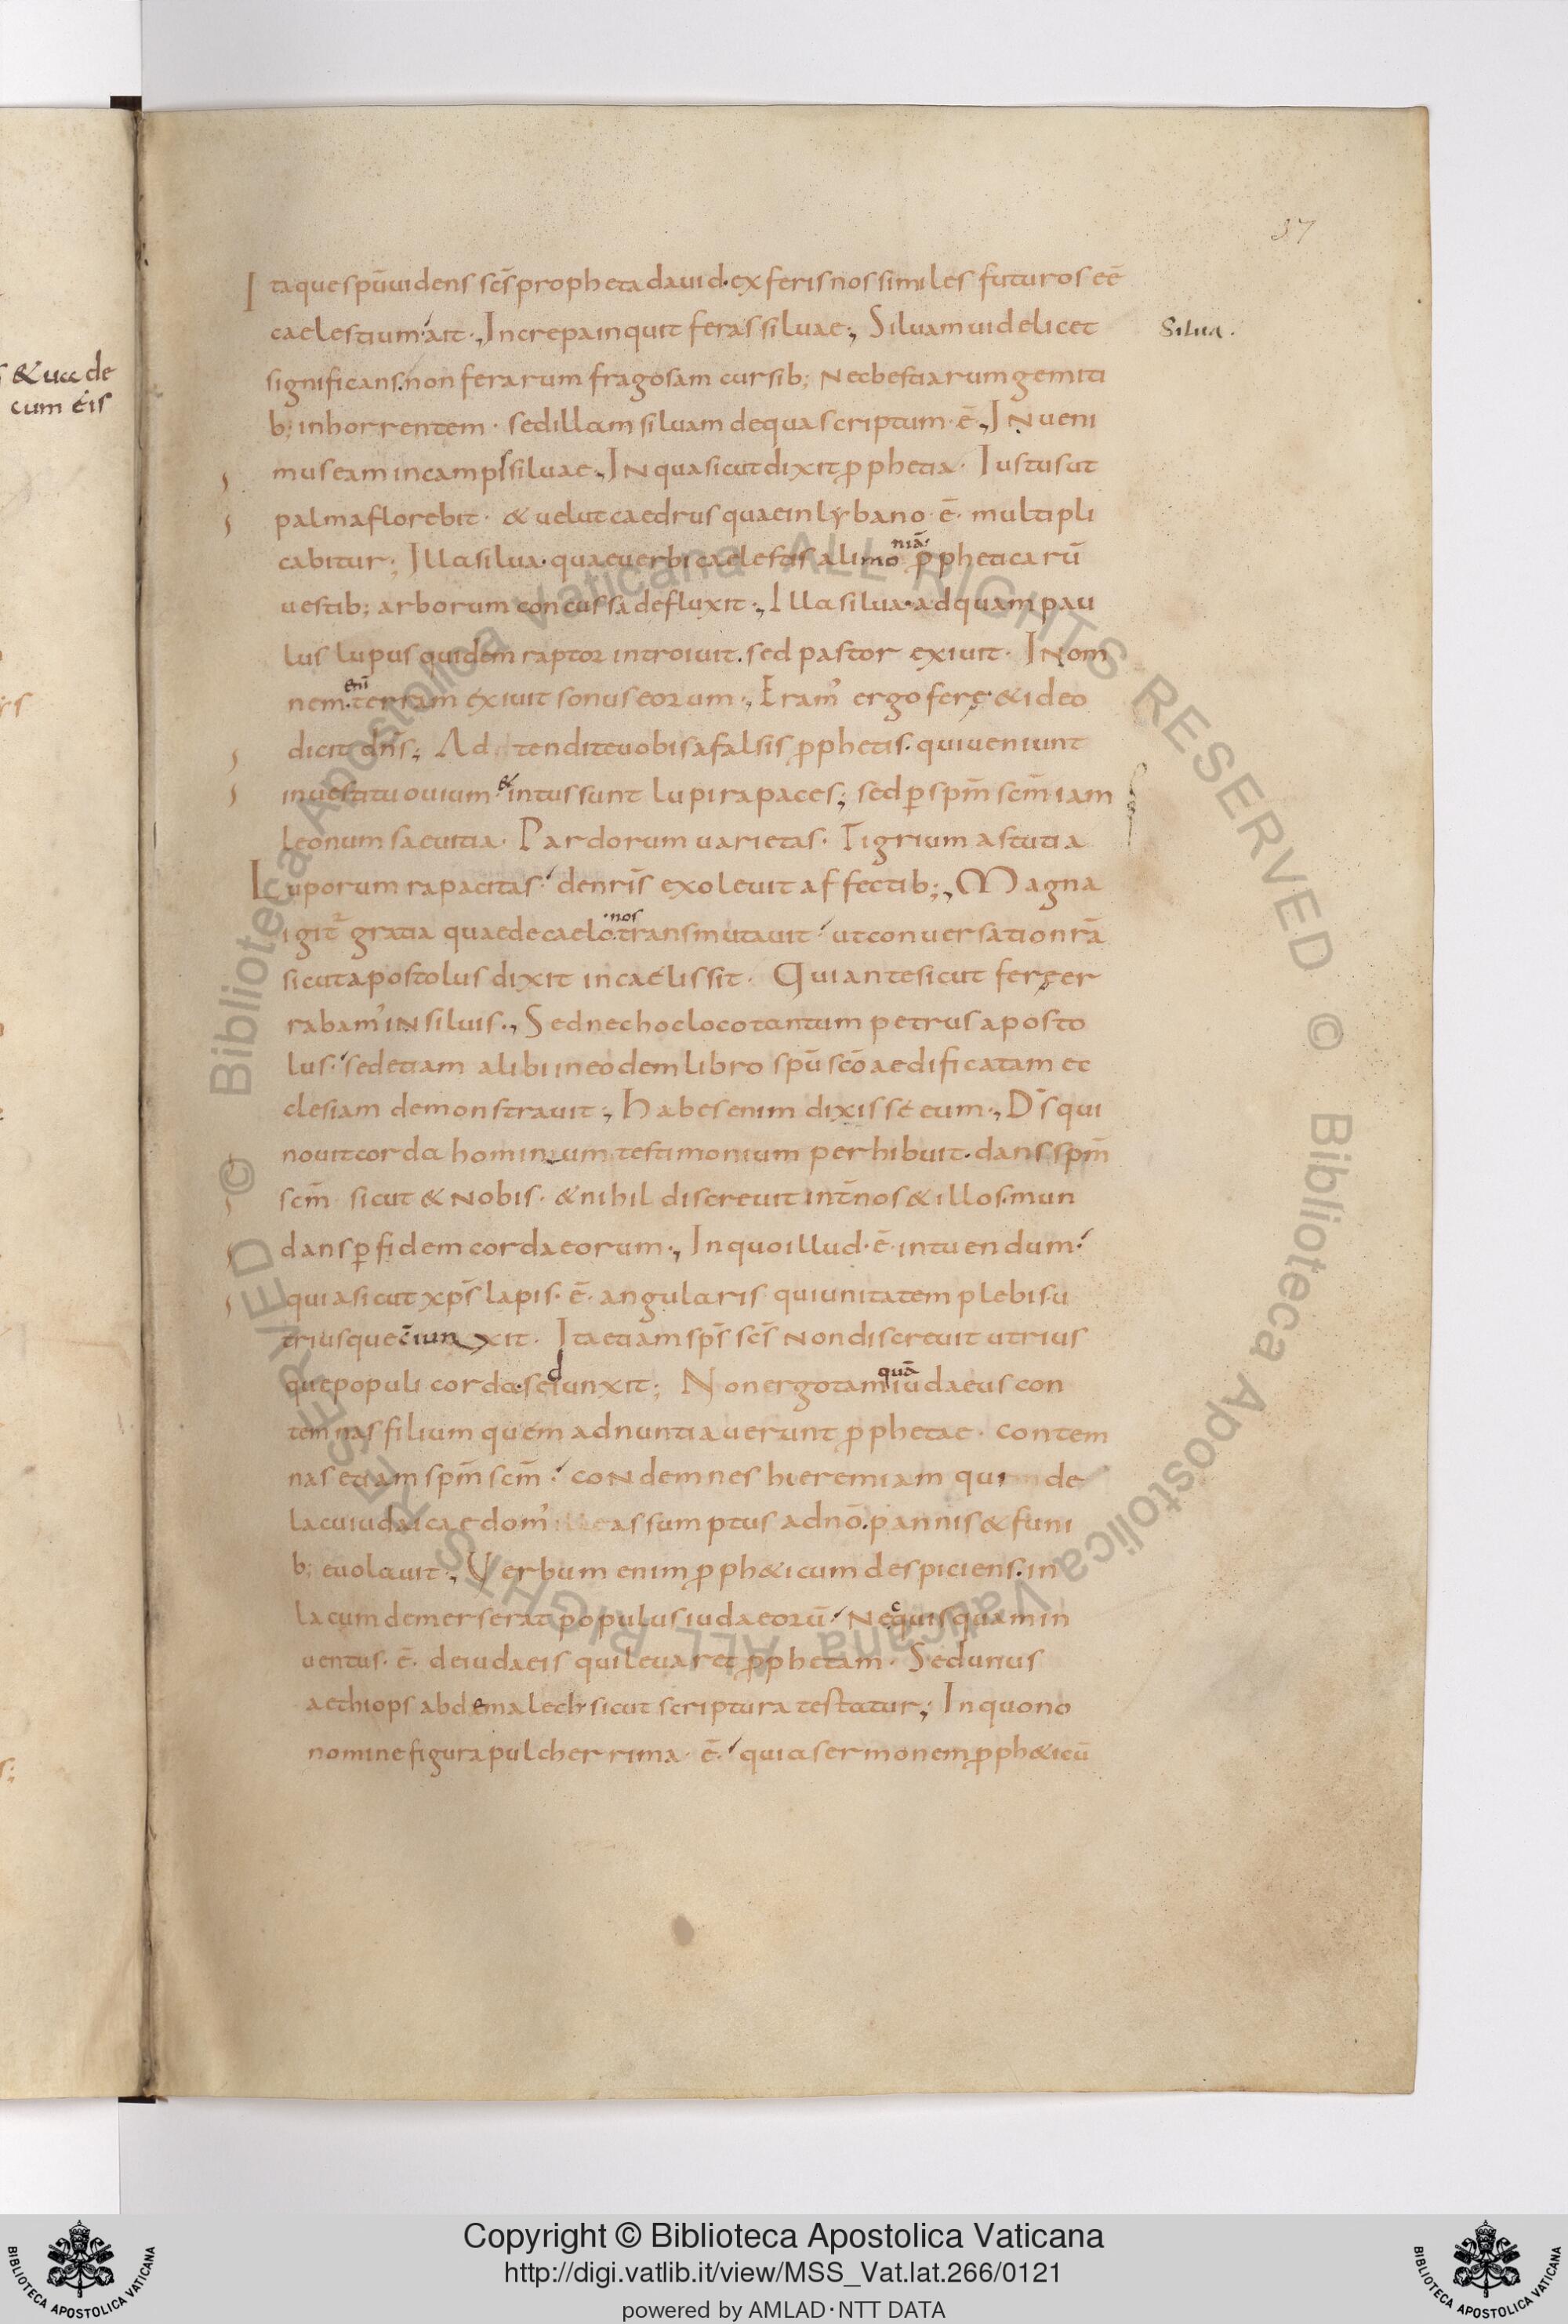 57
Itaque spū uidens scs̄ propheta dauid· ex feris nos similes futuros eē
caelestium· ait·, Increpa inquit feras siluae·, Siluam uidelicet
Silua.
significans. non ferarum fragosam cursib; Nec bestiarum gemiti
b; inhorrentem· sed illam siluam de qua scriptum· ē·, INueni
mus eam in campis siluae·, IN qua sicut dixit pphetia· Iustus ut
palma florebit· & uelut caedrus quae in lybano· ē· multipli
cabitur; Illa silua· quae uerbi caelestis alimoniā ppheticarū
uestib; arborum concussa defluxit·, Illa silua· ad quam pau
lus lupus quidem raptor introiuit. sed pastor exiuit· INom
nem enī terram exiuit sonus eorum·, Eram' ergo ferę· & ideo
dicit dns̄; Ad tendite uobis a falsis pphetis. qui ueniunt
in uestitu ouium· & intus sunt lupi rapaces; sed p spm̄ scm̄ iam
leonum saeuitia· Pardorum uarietas· Tigrium astutia
Luporum rapacitas· de nrīs exoleuit affectib;, Magna
igit̄ gratia quae de caelo· nos transmutauit· ut conuersatio nrā
sicut apostolus dixit in caelis sit· Qui ante sicut ferę er
rabam' iN siluis·, Sed nec hoc loco tantum petrus aposto
lus· sed etiam alibi in eodem libro spū scō aedificatam ec
clesiam demonstrauit·, Habes enim dixisse eum·, Ds̄ qui
nouit corda hominum testimonium perhibuit· dans spm̄
scm̄ sicut & Nobis· & nihil discreuit int̄ nos & illos· mun
dans p fidem corda eorum·, In quo illud· ē· intuendum·
quia sicut xps̄ lapis· ē· angularis qui unitatem plebis u
triusque c̄iunxit· Ita etiam sps̄ scs̄ Non discreuit utrius
que populi corda· sed iunxit; Non ergo tamquā iudaeus con
temnas filium quem adnuntiauerunt pphetae· contem
nas etiam spm̄ scm̄· coNdemnes hieremiam qui de
lacu iudaicae dom' assumptus ad nō. pannis & funi
b; euolauit·, Verbum enim pph&icum despiciens· in
lacum demerserat populus iudaeorū· Nec quisquam in
uentus· ē· de iudaeis qui leuaret pphetam· Sed unus
aethiops abdemalech sicut scriptura testatur; In quo no
nomine figura pulcherrima· ē· quia sermonem pph&icū
& uade
cum eis
© Biblioteca Apostolica Vaticana ALL RIGHTS RESERVED © Biblioteca Apostolica Vaticana ALL RIGHTS RESERVED
Copyright © Biblioteca Apostolica Vaticana
http://digi.vatlib.it/view/MSS_Vat.lat.266/0121
powered by AMLAD·NTT DATA
BIBLIOTECA APOSTOLICA VATICANA
BIBLIOTECA APOSTOLICA VATICANA